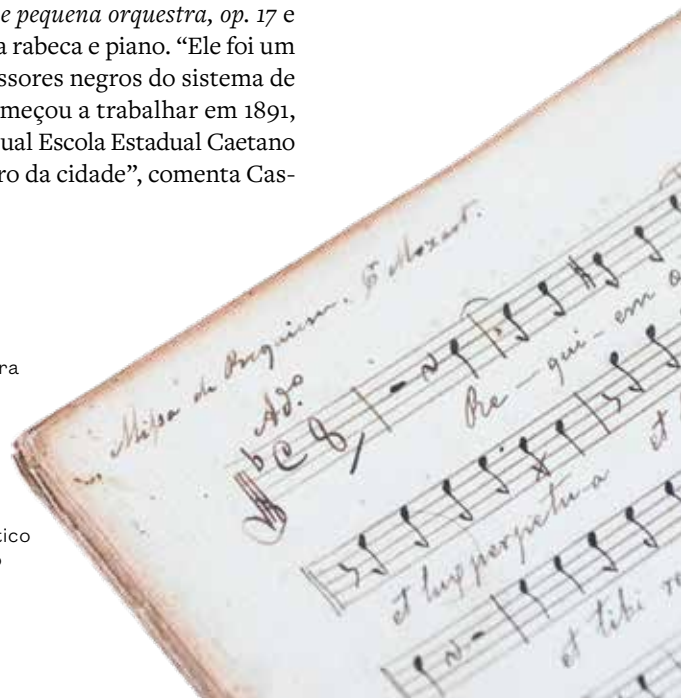 e pequena orquestra, op. 17 e
a rabeca e piano. “Ele foi um
ssores negros do sistema de
meçou a trabalhar em 1891,
ual Escola Estadual Caetano
ro da cidade”, comenta Cas-
ra
tico
o
Missa de Requiem. Mozart.
Adº
Re - qui - em
et lux perpetu-a et
et tibi re